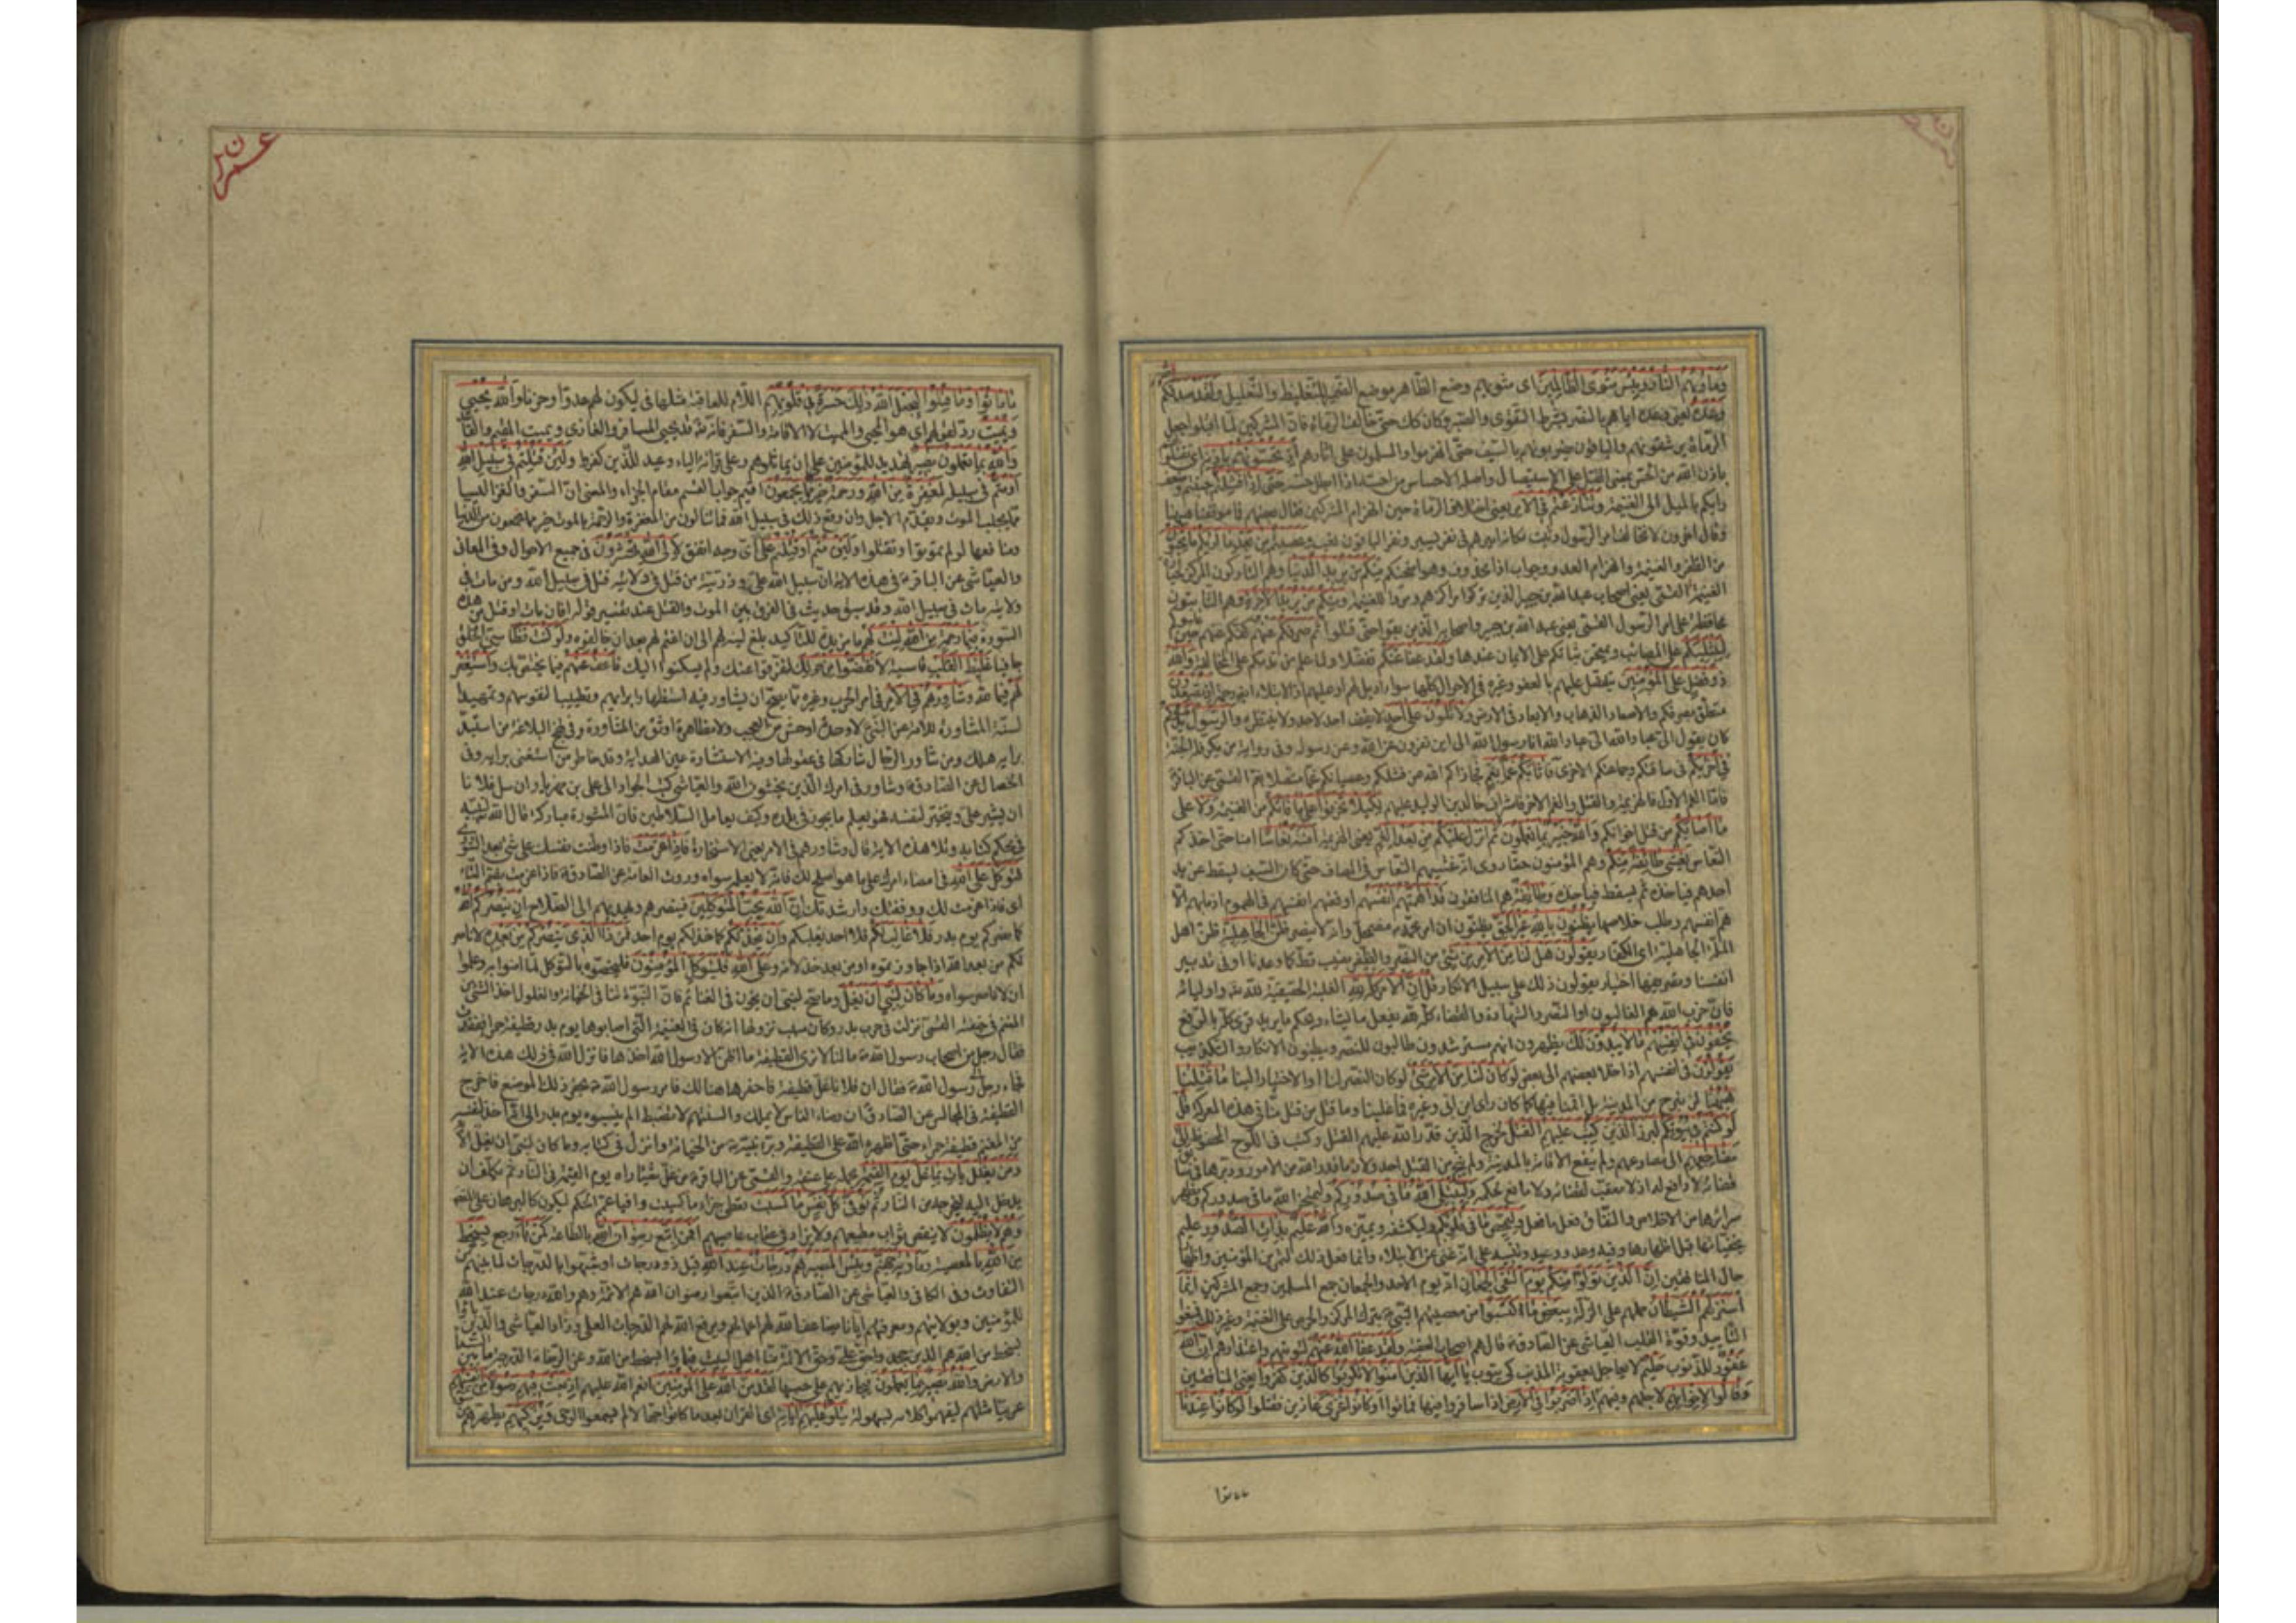 ومأويهم النار وبئس مثوى الظالمين اى مثويهم وضع الظاهر موضع الضمير للتغليظ والتعليل ولقد صدقكم الله
وعده يعنى وعده اياهم بالنصر بشرط التقوى والصبر وكان كك حتى خالف الرماة فان المشركين لما اقبلوا جعل
الرماة يرشقونهم والباقون يضربونهم بالسيف حتى انهزموا والمسلمون على اثارهم اذ تحسونهم باذنه اى تقتلونهم
باذن الله من الحس بمعنى القتل على الاستيصال واصله الاحساس من احس اذا ابطل حسه حتى اذا فشلتم جبنتم وضعف
رايكم بالميل الى الغنيمة وتنازعتم فى الامر يعنى اختلاف الرماة حين انهزام المشركين فقال بعضهم فما موقفنا هيهنا
وقال اخرون لا نخالف امر الرسول وثبت مكانه اميرهم فى نفر يسير ونفر الباقون للنهب وعصيتم من بعد ما اريكم ما تحبون
من الظفر والغنيمة وانهزام العدو وجواب اذا محذوف وهو امتحنكم منكم من يريد الدنيا وهم التاركون المركز لحيازة
الغنيمة القمى يعنى اصحاب عبد الله بن جبير الذين تركوا مراكزهم ومروا للغنيمة ومنكم من يريد الاخرة وهم الثابتون
محافظة على امر الرسول القمى يعنى عبد الله بن جبير واصحابه الذين بقوا حتى قتلوا ثم صرفكم عنهم كفكم عنهم حين غلبوكم
ليبتليكم على المصائب ويمتحن ثباتكم على الايمان عندها ولقد عفا عنكم تفضلا ولما علم من ندمكم على المخالفة والله
ذو فضل على المؤمنين يتفضل عليهم بالعفو وغيره فى الاحوال كلها سواء اديل لهم او عليهم اذ الابتلاء ايضا رحمة اذ تصعدون
متعلق بصرفكم والاصعاد الذهاب والابعاد فى الارض ولا تلون على احد لا يقف احد لاحد ولا ينتظره والرسول يدعوكم
كان يقول الى عباد الله الى عباد الله انا رسول الله الى اين تفرون عن الله وعن رسوله وفى رواية من يكر فله الجنة
فى اخريكم فى ساقتكم وجماعتكم الاخرى فاثابكم غما بغم فجازاكم الله عن فشلكم وعصيانكم غما متصلا بغم القمى عن الباقر
فاما الغم الاول فالهزيمة والقتل والغم الاخر فاشراف خالد بن الوليد عليهم لكيلا تحزنوا على ما فاتكم من الغنيمة ولا على
ما اصابكم من قتل اخوانكم والله خبير بما تعملون ثم انزل عليكم من بعد الغم يعنى الهزيمة امنة نعاسا امنا حتى اخذكم
النعاس يغشى طائفة منكم وهم المؤمنون حقا روى انه غشيهم النعاس فى المصاف حتى كان السيف ليسقط عن يد
احدهم فياخذه ثم يسقط فياخذه وطائفة هم المنافقون قد اهمتهم انفسهم اوقعتهم انفسهم فى الهموم اذ ما بهم الا
هم انفسهم وطلب خلاصها يظنون بالله غير الحق يظنون ان امر محمد مضمحل وانه لا ينصر ظن الجاهلية ظن اهل
الملة الجاهلية اى الكفار يقولون هل لنا من الامر من شئ من النصر والظفر نصيب قط كما وعدنا او فى تدبير
انفسنا وتصريفها اختيار يقولون ذلك على سبيل الانكار قل ان الامر كله لله الغلبة الحقيقية لله واوليائه
فان حزب الله هم الغالبون او النصر والشهادة والقضاء كله لله يفعل ما يشاء ويحكم ما يريد
يخفون فى انفسهم ما لا يبدون لك يظهرون انهم مسترشدون طالبون للنصر ويبطنون الانكار والتكذيب
يقولون فى انفسهم اذا خلا بعضهم الى بعض لو كان لنا من الامر شئ لو كان النصر لنا او الاختيار الينا ما قتلنا
هيهنا لم نبرح من المدينة بل اقمنا فيها كما كان راى ابن ابى وغيره فما غلبنا وما قتل من قتل منا فى هذه المعركة قل
لو كنتم فى بيوتكم لبرز الذين كتب عليهم القتل لخرج الذين قدر الله عليهم القتل وكتب فى اللوح المحفوظ الى
مضاجعهم الى مصارعهم ولم ينفع الاقامة بالمدينة ولم ينج من القتل احد فانه قدر الامور ودبرها فى سابق
قضائه لا دافع له اذ لا معقب لقضائه ولا مانع لحكمه وليبتلى الله ما فى صدوركم وليمتحن الله ما فى صدوركم ويظهر
سرائرها من الاخلاص والنفاق فعل ما فعل وليمحص ما فى قلوبكم وليكشفه ويميزه والله عليم بذات الصدور عليم
بخفياتها قبل اظهارها وفيه وعد ووعيد وتنبيه على انه غنى عن الابتلاء وانما فعل ذلك لتمرين المؤمنين واظهار
حال المنافقين ان الذين تولوا منكم يوم التقى الجمعان انهزموا يوم الاحد والجمعان جمع المسلمين وجمع المشركين انما
استزلهم الشيطان حملهم على الزلة ببعض ما اكتسبوا من معصيتهم النبى بترك المركز والحرص على الغنيمة وغير ذلك فمنعوا
التاييد وقوة القلب العياشى عن الصادق قال هم اصحاب العقبة ولقد عفا الله عنهم لتوبتهم واعتذارهم ان الله
غفور للذنوب حليم لا يعاجل بعقوبة المذنب كى يتوب يا ايها الذين امنوا لا تكونوا كالذين كفروا يعنى المنافقين
وقالوا لاخوانهم لاجلهم وفيهم اذا ضربوا فى الارض اذا سافروا فيها فماتوا او كانوا غزى غازين فقتلوا لو كانوا عندنا
ما ماتوا
عمرن
ما ماتوا وما قتلوا ليجعل الله ذلك حسرة فى قلوبهم اللام للعاقبة مثلها فى ليكون لهم عدوا وحزنا والله يحيى
ويميت رد لقولهم اى هو المحيى والمميت لا الاقامة والسفر فانه تعالى قد يحيى المسافر والغازى ويميت المقيم والقاعد
والله بما تعملون بصير تهديد للمؤمنين على ان يماثلوهم وعلى قرائة الياء وعيد للذين كفروا ولئن قتلتم فى سبيل الله
او متم فى سبيله لمغفرة من الله ورحمة خير مما يجمعون اقيم جواب القسم مقام الجزاء والمعنى ان السفر والغزا ليسا
مما يجلب الموت ويقدم الاجل وان وقع ذلك فى سبيل الله فما تنالون من المغفرة والرحمة بالموت خير مما تجمعون من الدنيا
ومنافعها لو لم تموتوا وتقتلوا ولئن متم او قتلتم على اى وجه اتفق لالى الله تحشرون فى جميع الاحوال وفى المعانى
والعياشى عن الباقر فى هذه الاية ان سبيل الله على وذريته من قتل فى ولايته قتل فى سبيل الله ومن مات فى
ولايته مات فى سبيل الله وقد سبق حديث فى الفرق بين الموت والقتل عند تفسير قوله افان مات او قتل من هذه
السورة فبما رحمة من الله لنت لهم ما مزيدة للتاكيد بلغ لينه لهم الى ان اغتم لهم بعد ان خالفوه ولو كنت فظا سيئ الخلق
جافيا غليظ القلب قاسيه لانفضوا من حولك لتفرقوا عنك ولم يسكنوا اليك فاعف عنهم فيما يختص بك واستغفر
لهم فيما لله وشاورهم فى الامر فى امر الحرب وغيره مما يصح ان يشاور فيه استظهارا برايهم وتطييبا لنفوسهم وتمهيدا
لسنة المشاورة للامة عن النبى لا وحدة اوحش من العجب ولا مظاهرة اوثق من المشاورة وفى نهج البلاغة من استبد
برايه هلك ومن شاور الرجال شاركها فى عقولها وفيه الاستشارة عين الهداية وقد خاطر من استغنى برايه وفى
الخصال عن الصادق وشاور فى امرك الذين يخشون الله والعياشى كتب الجواد الى على بن مهزيار ان سل فلانا
ان يشير على ويتخير لنفسه فهو يعلم ما يجوز فى بلده وكيف يعامل السلاطين فان المشورة مباركة قال الله لنبيه
فى محكم كتابه وتلا هذه الاية قال وشاورهم فى الامر يعنى الاستخارة فاذا عزمت فاذا وطنت نفسك على شئ بعد الشورى
فتوكل على الله فى امضاء امرك على ما هو اصلح لك فانه لا يعلمه سواه وروت العامة عن الصادق فاذا عزمت بضم التاء
اى فاذا عزمت لك ووفقتك وارشدتك ان الله يحب المتوكلين فينصرهم ويهديهم الى الصلاح ان ينصركم الله
كما نصركم يوم بدر فلا غالب لكم فلا احد يغلبكم وان يخذلكم كما خذلكم يوم احد فمن ذا الذى ينصركم من بعده لا ناصر
لكم من بعد الله اذا جاوزتموه او من بعد خذلانه وعلى الله فليتوكل المؤمنون فليخصوه بالتوكل لما امنوا به وعلموا
ان لا ناصر سواه وما كان لنبى ان يغل وما صح لنبى ان يخون فى الغنائم فان النبوة تنافى الخيانة والغلول اخذ الشئ من
المغنم فى خفية القمى نزلت فى حرب بدر وكان سبب نزولها انه كان فى الغنيمة التى اصابوها يوم بدر قطيفة حمراء ففقدت
فقال رجل من اصحاب رسول الله ما لنا لا نرى القطيفة ما اظن الا رسول الله اخذها فانزل الله فى ذلك هذه الاية
فجاء رجل الى رسول الله فقال ان فلانا غل قطيفة فاحفرها هنالك فامر رسول الله بحفر ذلك الموضع فاخرج
القطيفة فى المجالس عن الصادق ان رضاء الناس لا يملك والسنتهم لا تضبط الم ينسبوه يوم بدر الى انه اخذ لنفسه
من المغنم قطيفة حمراء حتى اظهره الله على القطيفة وبرء نبيه من الخيانة وانزل فى كتابه وما كان لنبى ان يغل الاية
ومن يغلل يات بما غل يوم القيمة يحمله على عنقه والقمى عن الباقر من غل شيئا راه يوم القيمة فى النار ثم يكلف ان
يدخل اليه فيخرجه من النار ثم توفى كل نفس ما كسبت تعطى جزاء ما كسبت وافيا عمم الحكم ليكون كالبرهان على المقصود
وهم لا يظلمون لا ينقص ثواب مطيعهم ولا يزاد فى عقاب عاصيهم افمن اتبع رضوان الله بالطاعة كمن باء رجع بسخط
من الله بالمعصية ومأويه جهنم وبئس المصير هم درجات عند الله قيل ذوو درجات او شبهوا بالدرجات لما بينهم من
التفاوت وفى الكافى والعياشى عن الصادق الذين اتبعوا رضوان الله هم الائمة وهم والله درجات عند الله
للمؤمنين وبولايتهم ومعرفتهم ايانا يضاعف الله لهم اعمالهم ويرفع الله لهم الدرجات العلى وزاد العياشى والذين باؤا
بسخط من الله هم الذين جحدوا حق على وحق الائمة منا اهل البيت فباؤا بسخط من الله وعن الرضا الدرجة ما بين السماء
والارض والله بصير بما يعملون فيجازيهم على حسبها لقد من الله على المؤمنين انعم الله عليهم اذ بعث فيهم رسولا من انفسهم
عربيا مثلهم ليفهموا كلامه بسهولة يتلو عليهم اياته اى القران بعد ما كانوا جهالا لم يسمعوا الوحى ويزكيهم يطهرهم من
عمرن